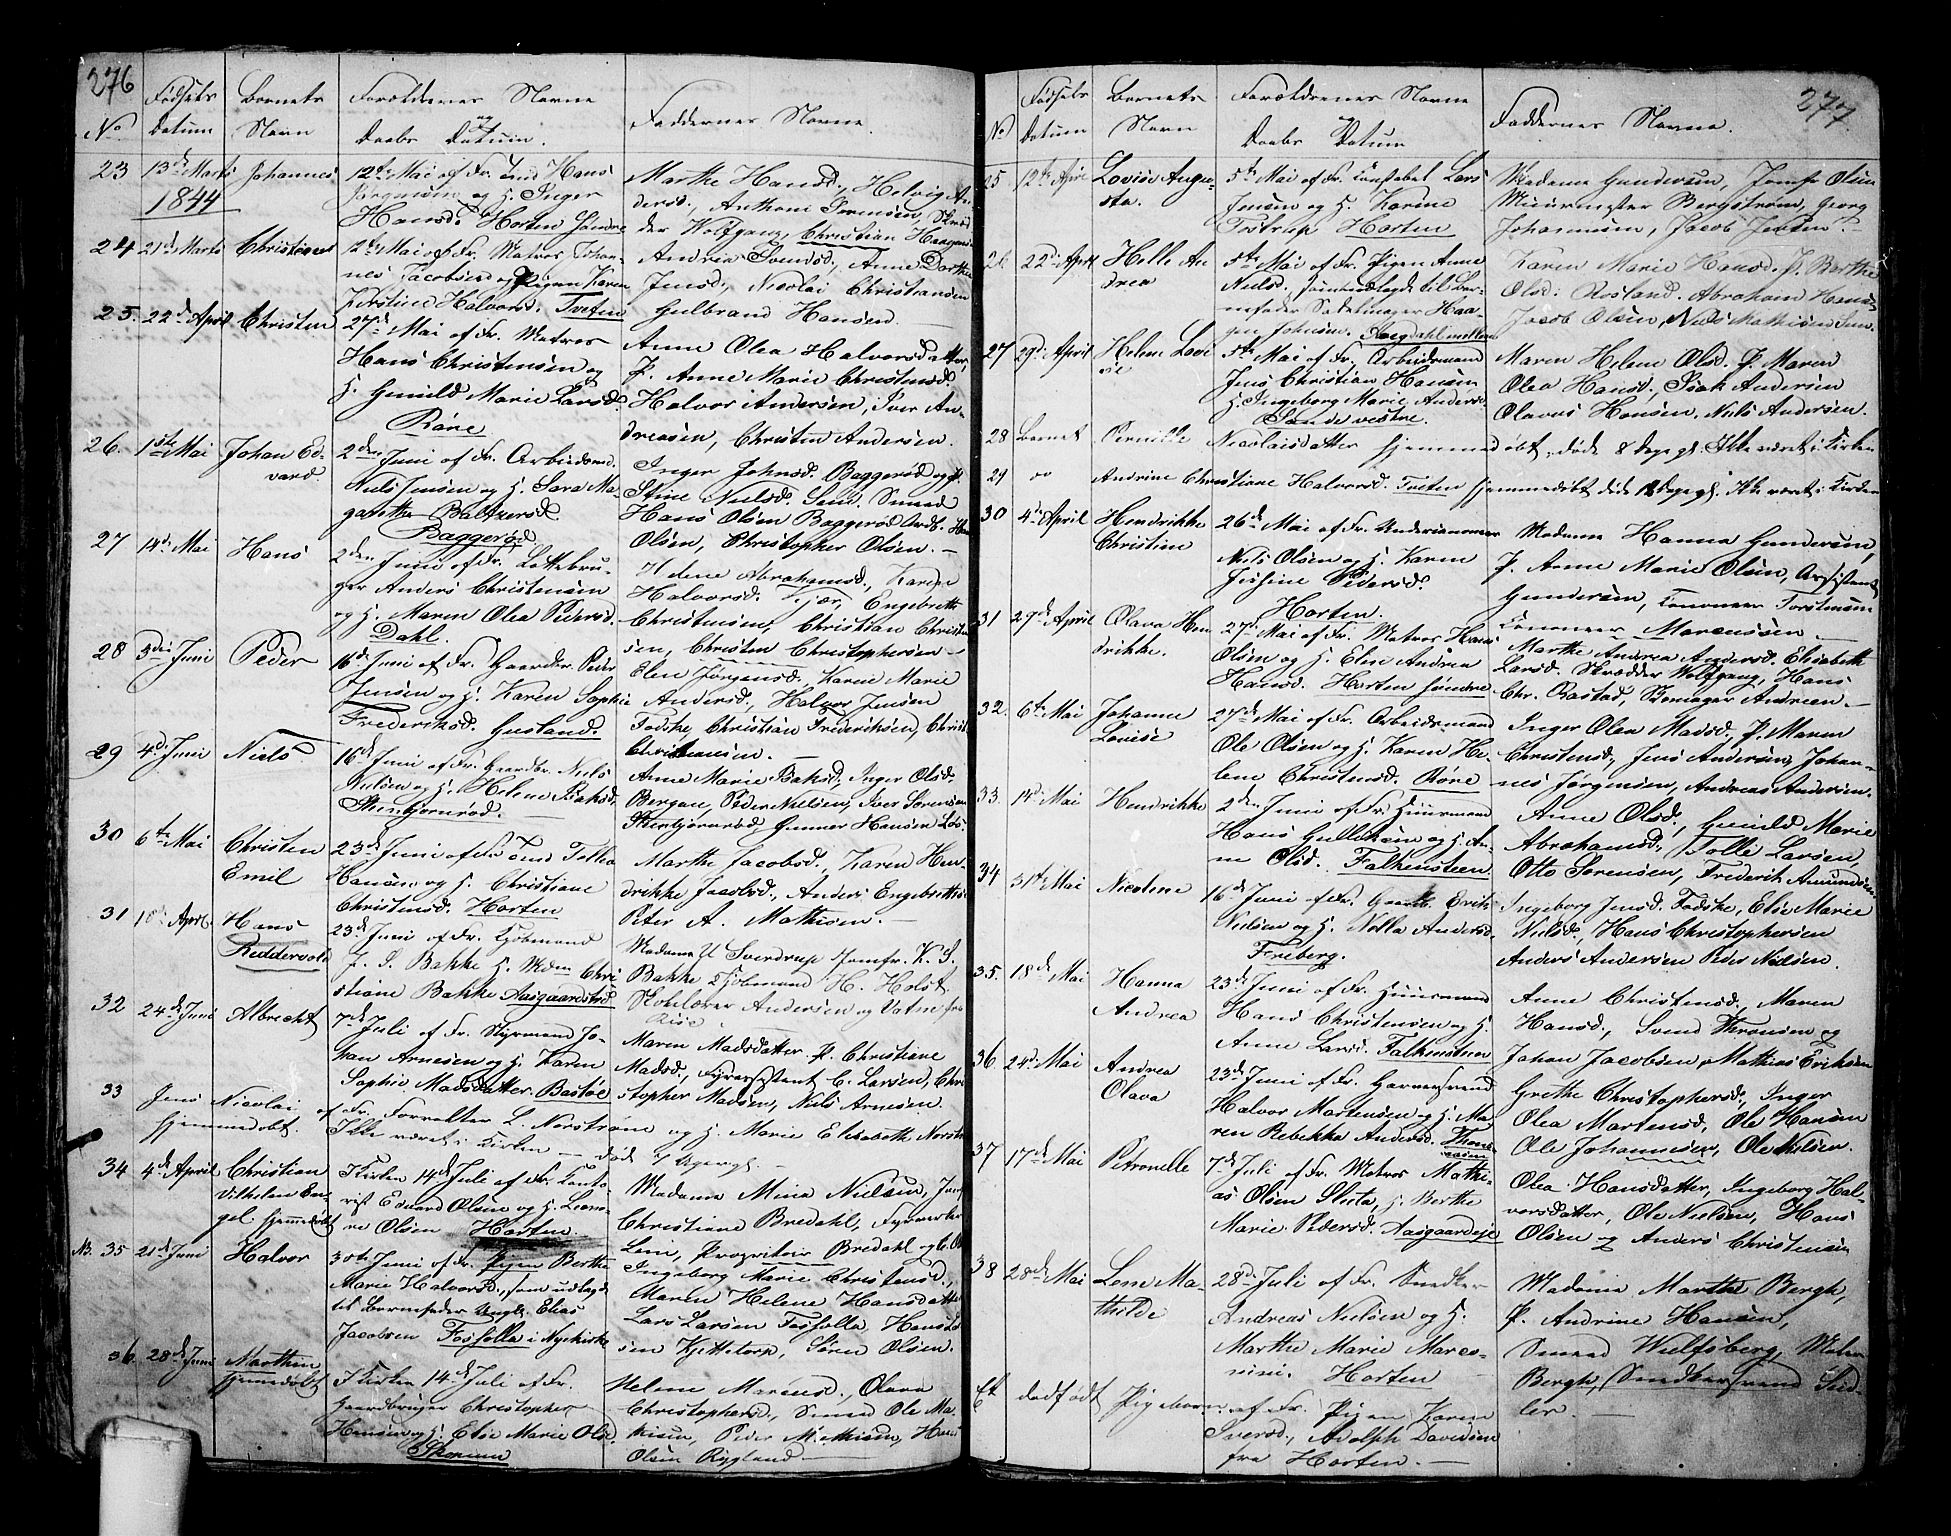 276
No
Fødsels Datum
Barnets Navn
Forældrenes Navne og Daabs Datum.
Faddernes Navne.
23
13de Marts
1844
Johannes
12te Mai af Fr. Hans
og H. Inger
Hansd. Horten Søndre
Marthe Hansd., Helvig An-
dersd., Anthoni Sørensen, Skræd
der Wolfgang, Christian Haagensen
24
21de Marts
Christian
12te Mai af Fr. Matros Johan-
nes Jacobsen og Pigen Karen
Kirstine Halvorsd. Tveten
Andrea Svendsd., Anne Dorthe
Jensd., Nicolai Christiansen
Gulbrand Hansen
25.
22de April
Christen
27de Mai af Fr. Matros
Hans Christensen og
H. Gunild Marie Larsd.
Røre
Anne Olea Halvorsdatter,
P. Anne Marie Christensd.
Halvor Andersen, Iver An-
dreasen, Christen Andersen.
26.
1ste Mai
Johan Ed-
vard
2den Juni af Fr. Arbeidsmd.
Niels Jensen og H. Sara Ma-
garethe Baltzersd.
Baggerød
Inger Johnsd. Baggerød og P.
Stine Nielsd. Smed
Hans Olsen Baggerød
Olsen, Christopher Olsen.
27
14de Mai
Hans
2den Juni af Fr. Lottebru-
ger Anders Christensen
og H. Maren Olea Pedersd.
Dahl.
Helene Abrahamsd., Karen
Halvorsd. Kjær, Engebreth
Christensen, Christian Christen
sen, Christen Christophersen
28
3die Juni
Peder
16de Juni af Fr. Gaardbr. Peder
Jensen og H. Karen Sophie
Frederiksd. Gusland.
Elen Jørgensd. Karen Marie
Andersd., Halvor Jensen
Fadske, Christian Frederiksen, Christ
Christiansen.
29
4de Juni
Niels
16de Juni af Fr. Gaardbr. Niels
Nielsen og H. Helene Baksd.
Skinbjørnrød.
Anne Marie Baksd., Inger Olsd.
Bergan, Peder Nielsen, Iver Sørensen
Skinbjørnrød Gunner Hansen
30
6te Mai
Christen
Emil
23de Juni af Fr. Tømd. Tolle
Hansen og H. Christiane
Christensd. Horten
Marthe Jacobsd., Karen Hen-
drikke Jacobsd., Anders Engebrethsen
Peter A. Mathisen.
31
18de April
Hans
Riddervold
23de Juni af Fr. Kjøbmand
J. S. Bakke H. Mdm Chri-
stiane Bakke Aasgaardstrand
Madame U. Sverdrup Jomfr. K. S.
Bakke Kjøbmand H. Holst
Skolelærer Andersen og Vatne fra
32
24de Juni
Albrecht
7de Juli af Fr. Styrmand Jo-
han Arnesen og H. Karen
Sophie Madsdatter Bastøe
Maren Madsdatter P. Christiane
Madsd., Fyrassistent C. Larsen, Chri
stopher Madsen, Niels Arnesen.
33
Jens Nicolai af Fr. Forvalter L. Norstrøm og H. Marie Elisabeth Norstrøm
Hjemmedøbt. Ikke været i Kirken — død 7 Dage gl. —
34
4de April
Christian
Vilhelm En-
gel. hjemmedøbt
I Kirken 14de Juli af Fr. Konto-
rist Edvard Olsen og H. Leono-
re Olsen Horten.
Madame Mina Nielsen, Jomf
Christiane Bredahl, Fyrverker
Lein, Proprietair Bredahl og
NB. 35
21de Juni
Halvor
30te Juni af Fr. Pigen Berthe
Marie Halvorsd., som udlagde
til Barnefader Ungk. Elias
Jacobsen Fosfolla i Nykirke
Ingeborg Marie Christensd.,
Maren Helene Hansdatter
Lars Larsen Fosfolla, Hans
sen Kjettetorp, Søren Olsen.
36.
28de Juni
Marthin
hjemmedøbt
I Kirken 14de Juli af Fr.
Gaardbruger Christopher
Hansen og H. Else Marie Olsd.
Skoppum
Helene Marensd., Olava
Christophersd., Smed Ole Ma-
thisen, Peder Mathisen, Hans
Olsen Rygland
277
No
Fødsels Datum
Barnets Navn
Forældrenes Navne og Daabs Datum
Faddernes Navne.
25
12te April
Lovise Augu-
sta.
5te Mai af Fr. Konstabel Lars
Jensen og H. Karine
Tostrup Horten
Madame Gundersen, Jomfr Olsen
Muurmester Bergstrøm, Georg
Johannesen, Jacob Jensen.
26
22de April
Helle An
drea
5te Mai af Fr. Pigen Anne
Nielsd., som udlagde til Bar-
nefader Sadelmager Haa-
gen Johnsen.
Karen Marie Hansd. P. Berthe
Olsd. Rosland. Abraham Hansen
Jacob Olsen, Niels Mathisen
27
29de April
Helene Lovi
se
5te Mai af Fr. Arbeidsmand
Jens Christian Hansen
H. Ingeborg Marie Andersd.
Sande vestre.
Maren Helene Olsd. P. Maren
Olea Hansd., Isak Andersen
Olavus Hansen, Niels Andersen.
28 Barnet Pernille Nicolaisdatter hjemmedøbt, døde 8 Dage gl. Ikke været i Kirken
29 Andrine Christiane Halvorsd. Tveten hjemmedøbt døde 12 Dage gl. Ikke været i Kirken
30
4de April
Hendrikke
Christine
26de Mai af Fr. Underkanoneer
Niels Olsen og H. Karen
Josefine Pedersd.
Horten.
Madame Hanna Gundersen,
P. Anne Marie Olsen, Assistent
Gundersen, Kanoneer Torstensen
Kanoneer Marcussen
31
29de April
Olava Hen
drikke.
27de Mai af Fr. Matros Hans
Olsen og H. Elise Andrea
Hansd. Horten søndre
Marthe Andrea Andersd. Elisabeth
Larsd. Skrædder Wolfgang, Hans
Chr. Bastad, Andersen
32.
6te Mai
Johanne
Lovise
27de Mai af Fr. Arbeidsmand
Ole Olsen og H. Karen He-
lene Christensd. Røre
Inger Olea Madsd., P. Maren
Christensd., Jens Andersen, Johan-
nes Jørgensen, Andreas Andersen.
33.
14de Mai
Hendrikke
2den Juni af Fr. Huusmand
Hans Gulliksen og H. An-
ne Olsd. Falkensteen
Anne Olsd., Gunild Marie
Abrahamsd., Tolle Larsen,
Otto Sørensen, Frederik Amundsen
34
31te Mai
Nicoline
16de Juni af Fr. Gaardb. Erik
Nielsen og H. Nella Andersd.
Freberg.
Ingeborg Jensd. Fadske, Else Marie
Nielsd., Hans Christophersen
Anders Andersen Peder Nielsen.
35.
18de Mai
Hanna
Andrea
23de Juni af Fr. Huusmand
Hans Christensen og H.
Anne Larsd. Falkensteen
Anne Christensd., Maren
Hansd., Svend Thronsen og
Johan Jacobsen, Mathias Eriksen
36
24de Mai
Andrea
Olava
23de Juni af Fr. Garversvend
Halvor Mortensen og H. Ma-
ren Rebekka Andersd.
Grethe Christophersd., Inger
Olea Mortensd., Ole Hansen
Ole Johannesen, Ole Nielsen.
37
17de Mai
Petronelle
7de Juli af Fr. Matros Mathi-
as Olsen Slette, H. Berthe
Marie Pedersd. Aasgaardeje
Olea Hansdatter, Ingeborg Hal-
vorsdatter, Ole Nielsen, Hans
Olsen og Anders Christensen
38
28de Mai
Lene Ma-
thilde
28de Juli af Fr. Snedker
Andreas Nielsen og H.
Marthe Marie Marcu-
Horten
Madame Marthe Bergh,
P. Andrine Hansen,
Smed Wulfsberg, Maler
Bergh, Snedkersvend Sad-
ler.
Et dødfødt Pigebarn af Fr. Pigen Karen
Iversd., Adolph Davidsen
fra Horten.